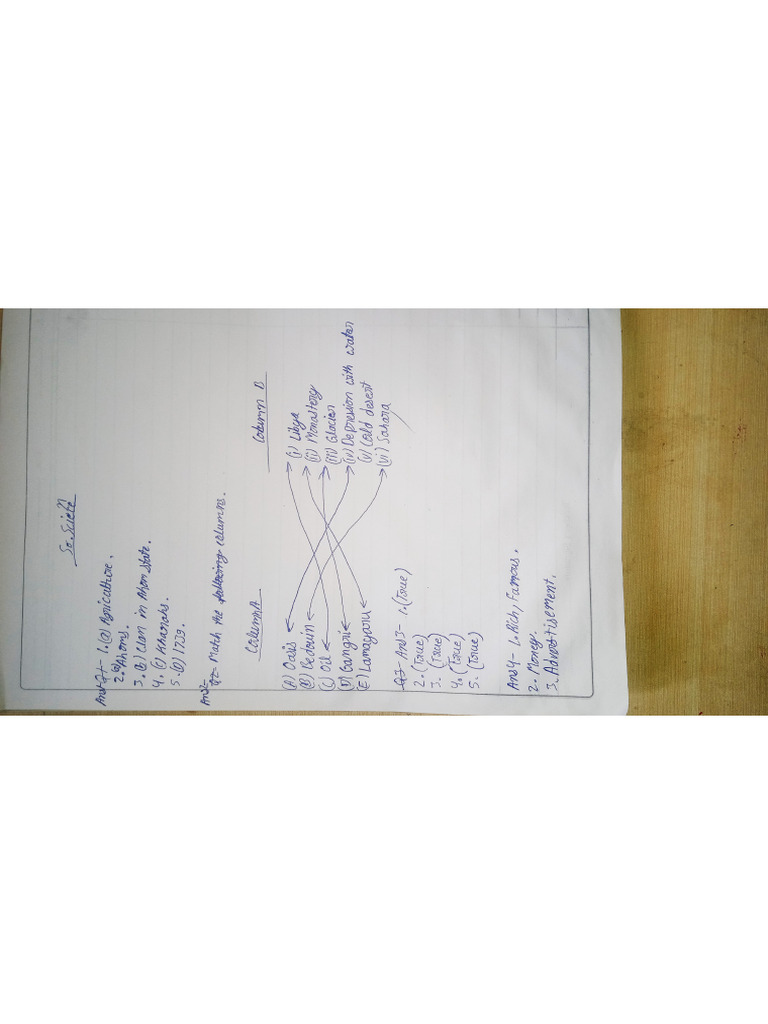 So. Scie
Ans 1- 1. (a) Agriculture.
2. (a) Ahoms.
3. (b) Clan in Ahom state.
4. (c) Khariahs.
5. (D) 1739.
Ans 2- Match the following columns.
Column A Column B
(A) Oasis (i) Libya
(B) Bedouin (ii) Monastery
(C) Oil (iii) Glacier
(D) Gangri (iv) Depression with water
(E) Lamayaru (v) Cold desert
(vi) Sahara
Ans 3- 1. (True)
2. (True)
3. (True)
4. (True)
5. (True)
Ans 4- 1. Rich, Famous.
2. Money.
3. Advertisement.